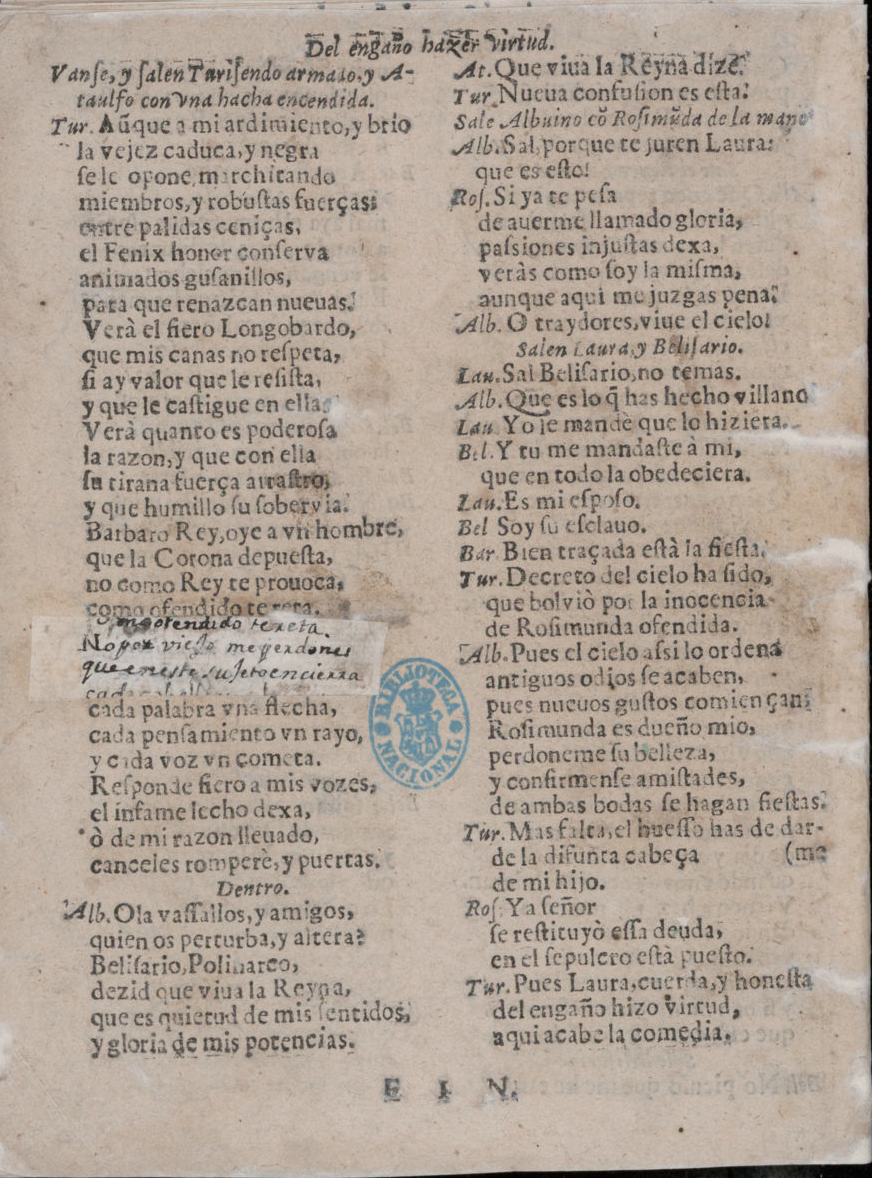 Del engaño hazer virtud.
Vanſe, y ſalen Turiſendo armado, y A-
taulfo con vna hacha encendida.
Tur. Aũque a mi ardimiento, y brio
la vejez caduca, y negra
ſe le opone, marchitando
miembros, y robuſtas fuerças;
entre palidas ceniças,
el Fenix honor conſerva
animados guſanillos,
para que renazcan nueuas.
Verà el fiero Longobardo,
que mis canas no reſpeta,
ſi ay valor que le reſiſta,
y que le caſtigue en ella.
Verà quanto es poderoſa
la razon, y que con ella
ſu tirana fuerça arraſtro,
y que humillo ſu ſobervia.
Barbaro Rey, oye a vn hombre,
que la Corona depueſta,
no como Rey te prouoca,
como ofendido te reta.
ofendido te reta.
No por viejo me perdones
que en este sujeto encierra
cada
cada palabra vna flecha,
cada penſamiento vn rayo,
y cada voz vn cometa.
Reſponde fiero a mis vozes,
el infame lecho dexa,
ò de mi razon lleuado,
canceles romperè, y puertas.
Dentro.
Alb. Ola vaſſallos, y amigos,
quien os perturba, y altera?
Beliſario, Polinarco,
dezid que viua la Reyna,
que es quietud de mis ſentidos,
y gloria de mis potencias.
At. Que viua la Reyna dize.
Tur. Nueua confuſion es eſta.
Sale Albuino cõ Roſimũda de la mano
Alb. Sal, porque te juren Laura:
que es eſto!
Roſ. Si ya te peſa
de auerme llamado gloria,
paſsiones injuſtas dexa,
veràs como ſoy la miſma,
aunque aqui me juzgas pena.
Alb. O traydores, viue el cielo!
Salen Laura, y Beliſario.
Lau. Sal Beliſario, no temas.
Alb. Que es lo q̃ has hecho villano
Lau. Yo le mandè que lo hiziera.
Bel. Y tu me mandaſte à mi,
que en todo la obedeciera.
Lau. Es mi eſpoſo.
Bel Soy ſu eſclauo.
Bar. Bien traçada eſtà la fieſta.
Tur. Decreto del cielo ha ſido,
que bolviò por la inocencia
de Roſimunda ofendida.
Alb. Pues el cielo aſsi lo ordena
antiguos odios ſe acaben,
pues nueuos guſtos comiençan;
Roſimunda es dueño mio,
perdoneme ſu belleza,
y confirmenſe amiſtades,
de ambas bodas ſe hagan fieſtas.
Tur. Mas falta, el hueſſo has de dar-
de la difunta cabeça (me
de mi hijo.
Roſ. Ya ſeñor
ſe reſtituyò eſſa deuda,
en el ſepulcro eſtà pueſto.
Tur. Pues Laura, cuerda, y honeſta
del engaño hizo virtud,
aqui acabe la comedia.
F I N.
BIBLIOTECA NACIONAL